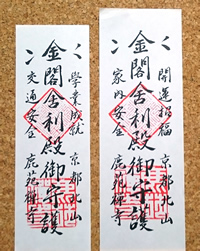 開運招福 京都北山
金閣舎利殿御守護
家内安全 鹿苑禅寺
學業成就 京都北山
金閣舎利殿御守護
交通安全 鹿苑禅寺